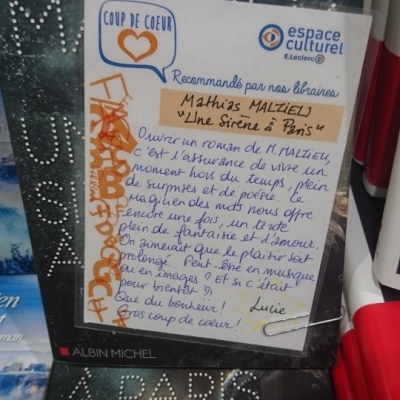 COUP DE COEUR
espace
culturel
E.Leclerc
Recommandé par nos libraires
Mathias MALZIEU
"Une Sirène à Paris"
Ouvrir un roman de M. MALZIEU,
c'est l'assurance de vivre un
moment hors du temps, plein
de surprises et de poésie. Le
magicien des mots nous offre
encore une fois, un texte
plein de fantaisie et d'amour.
On aimerait que le plaisir soit
prolongé. Peut-être en musique
ou en images ? Et si c'était
pour bientôt ?!
Que du bonheur !
Gros coup de coeur !
Lucie
ALBIN MICHEL
À PARIS